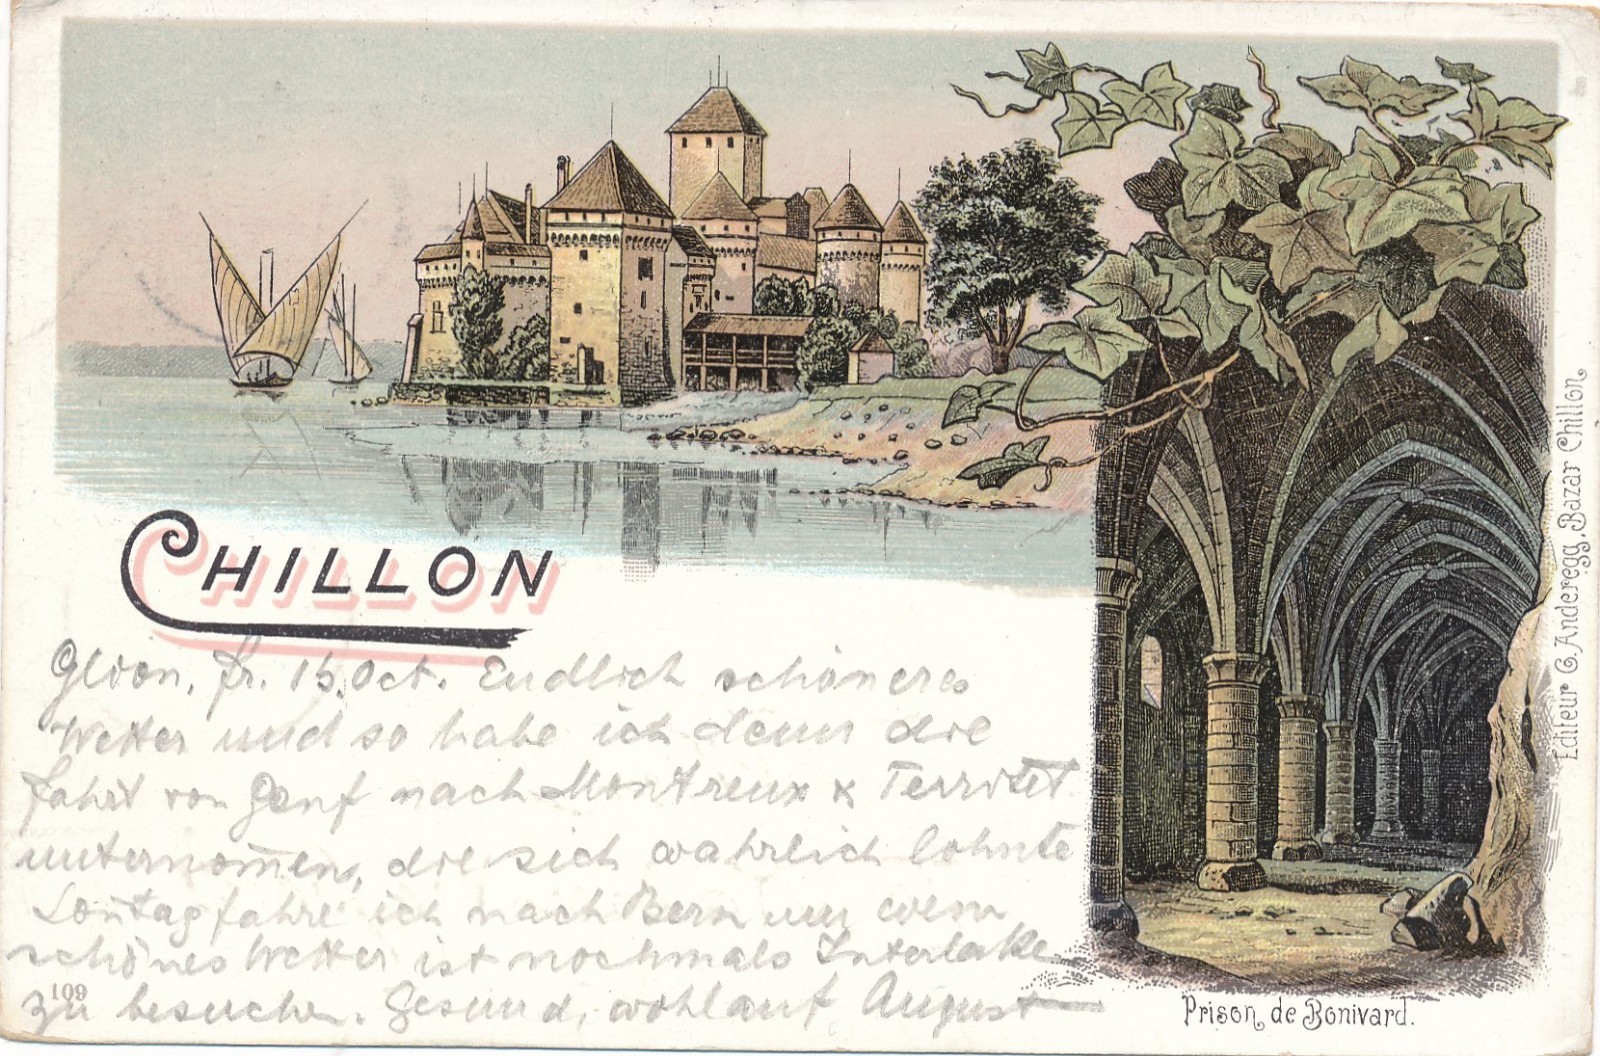 CHILLON
Glion, fr. 15. Oct. Endlich schöneres
Wetter und so habe ich denn die
fahrt von Genf nach Montreux & Territet
unternom̄en, die sich wahrlich lohnte
Son̄tag fahre ich nach Bern um wenn
schönes Wetter ist nochmals Interlake
zu besuchen. Gesund, wohlauf August
109
Prison de Bonivard.
Editeur C. Anderegg, Bazar Chillon